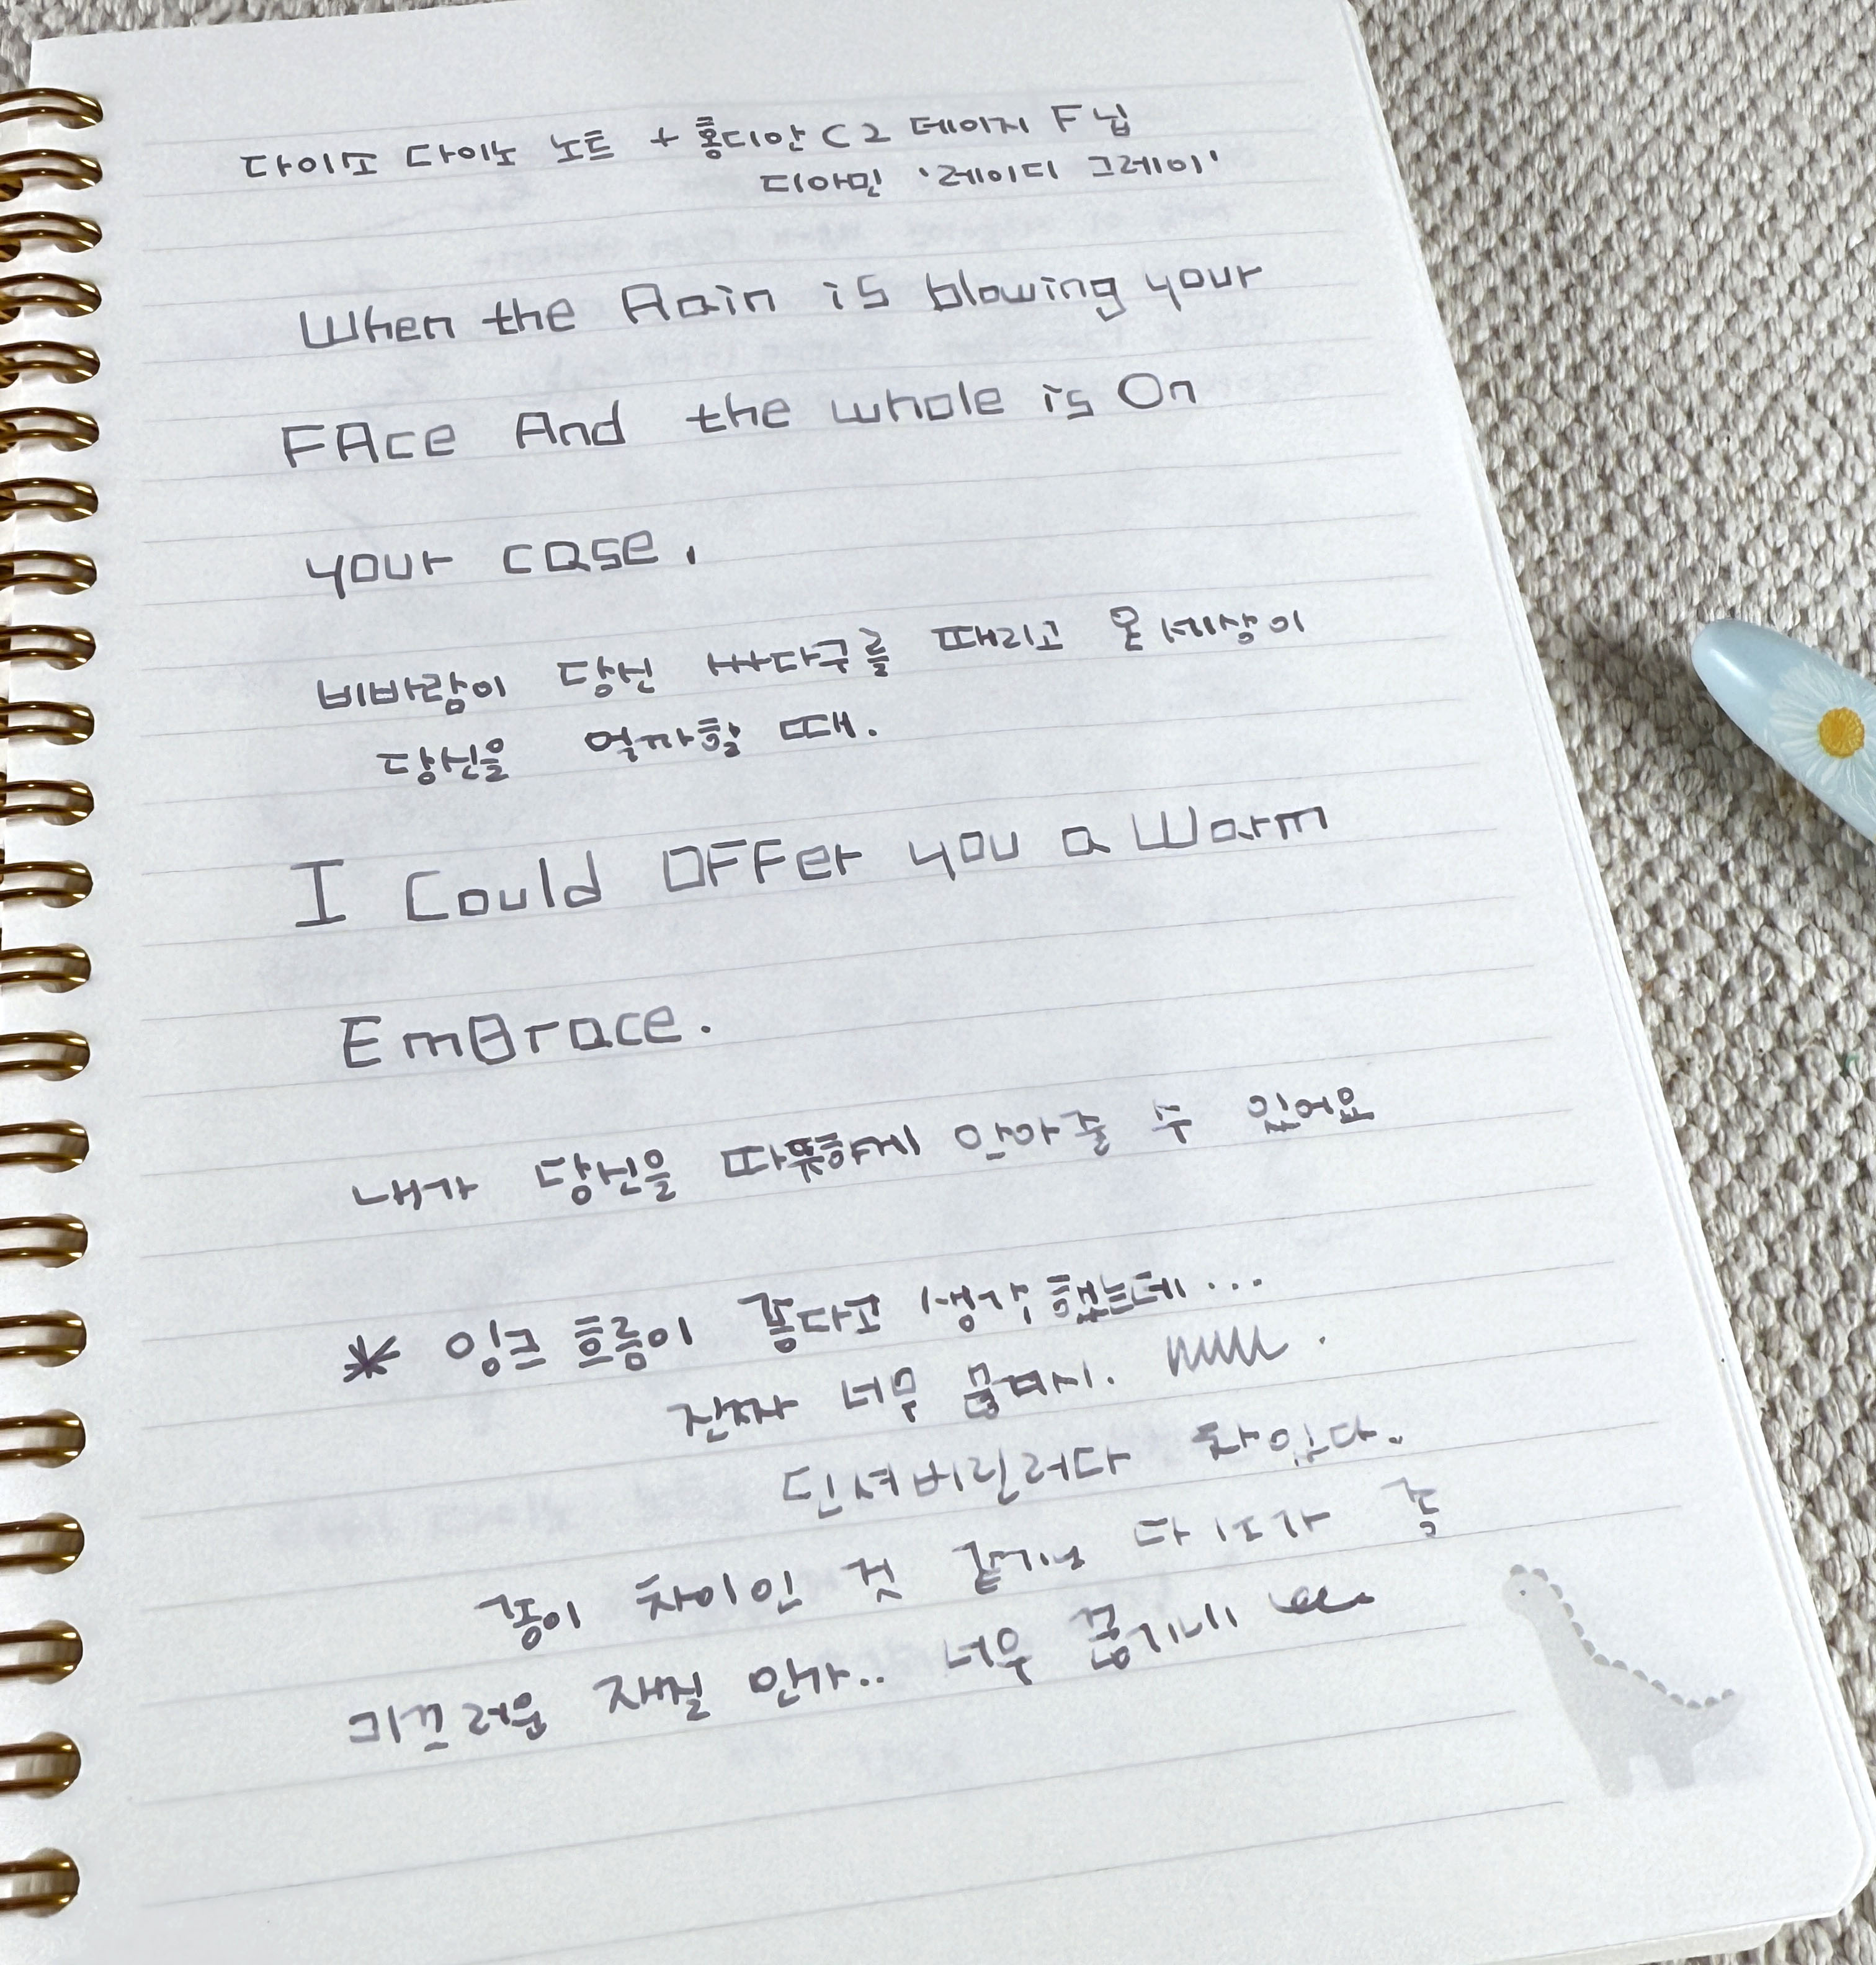 다이소 다이노 노트 + 홍디안 C2 데이지 F닙
디아민 '레이디 그레이'
When the Rain is blowing your
FAce And the whole is On
your case.
비바람이 당신 싸다구를 때리고 온세상이
당신을 억까할 때.
I Could OFFer you a Warm
EmBrace.
내가 당신을 따뜻하게 안아줄 수 있어요
* 잉크 흐름이 좋다고 생각했는데...
진짜 너무
던져버릴려다 참았다.
종이 차이인 것 같기도 다이소가 좀
미끄러운 재질 인가.. 너무 끊기네